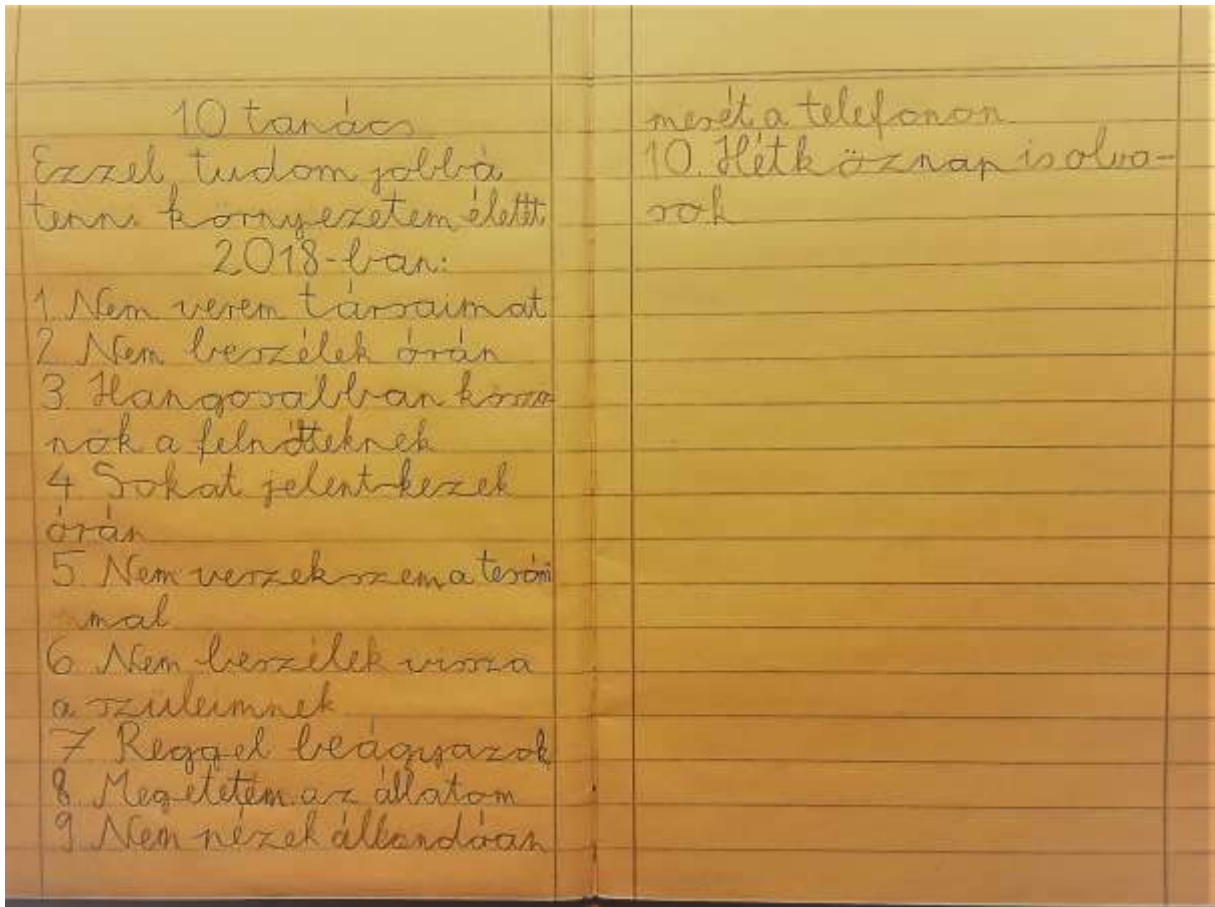 10 tanács
Ezzel tudom jobbá
tenni környezetem életét
2018-ban:
1. Nem verem társaimat
2. Nem beszélek órán
3. Hangosabban köszö-
nök a felnőtteknek
4. Sokat jelentkezek
órán
5. Nem veszekszem a tesóm
mal
6. Nem beszélek vissza
a szüleimnek
7. Reggel beágyazok
8. Megetetem az állatom
9. Nem nézek állandóan
mesét a telefonon
10. Hétköznap is olva-
sok